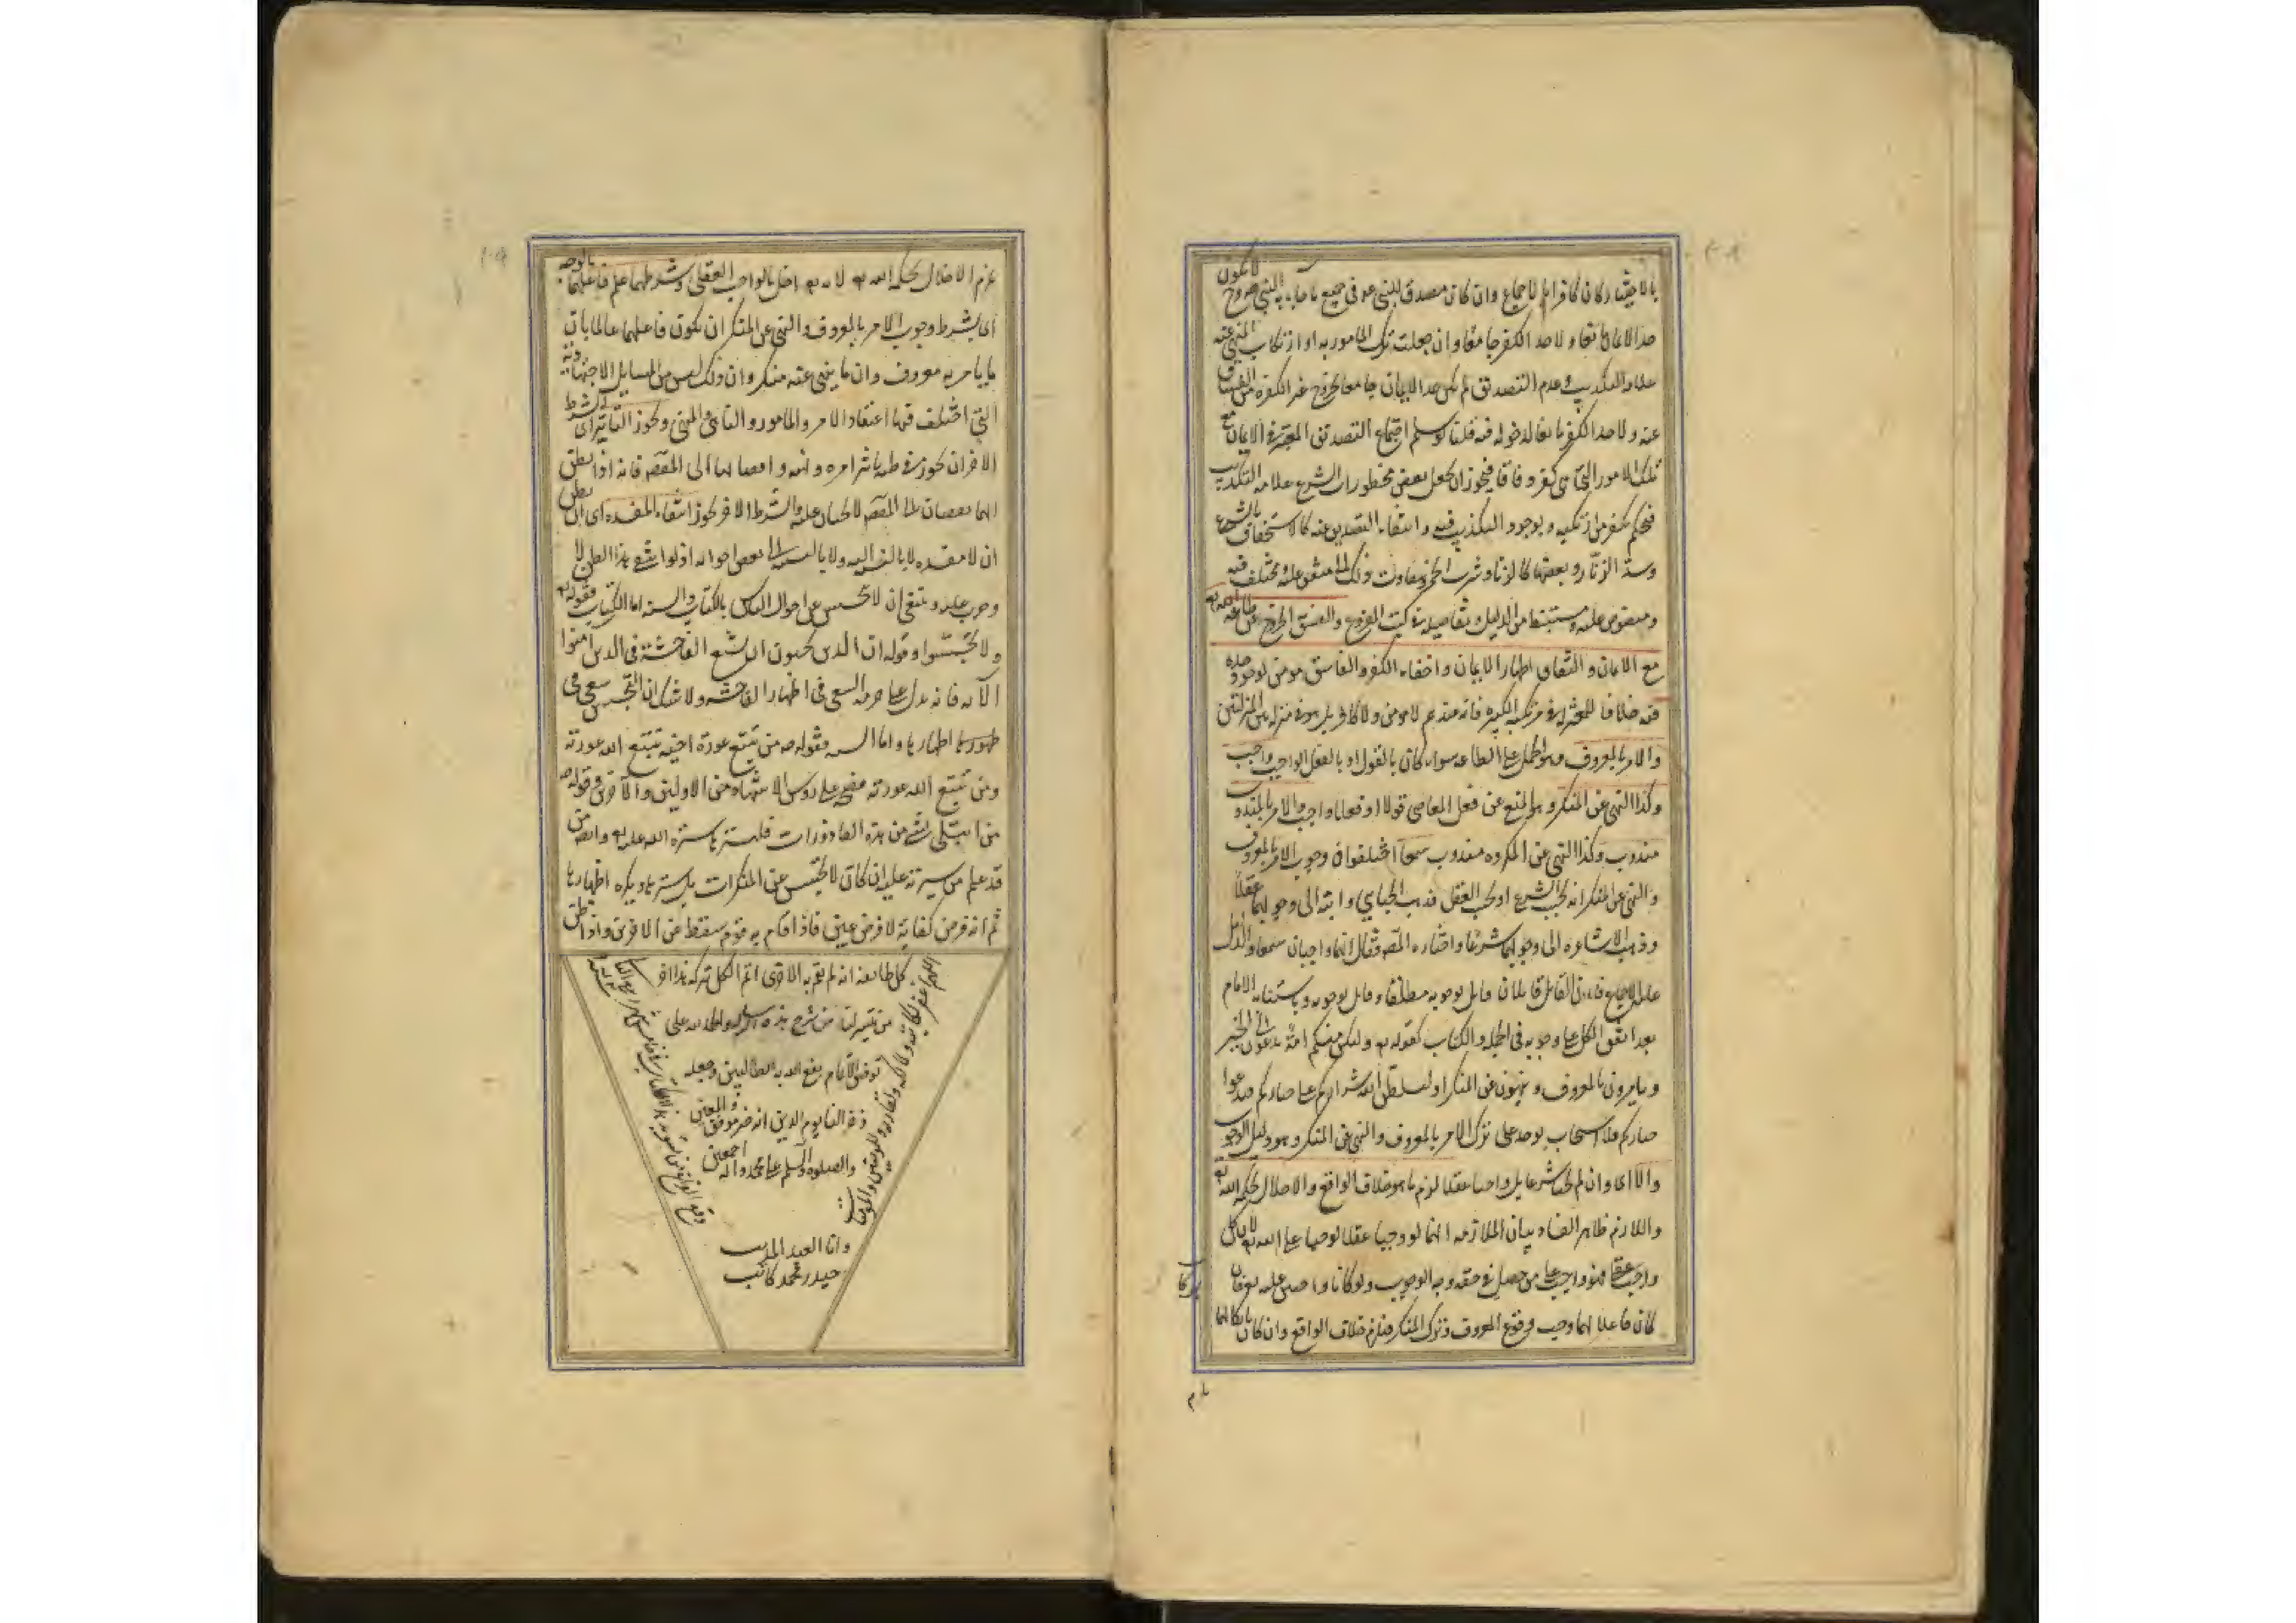 بالاختيار كان كافرا بالاجماع وان كان مصدقا للنبي في جميع ما جاء به النبي لا يكون
حد الايمان مانعا ولا حد الكفر جامعا وان جعلت ترك المامور به او ارتكاب المنهي عنه
علامة التكذيب وعدم التصديق لم يكن حد الايمان جامعا لخروج غير الكفرة من الفساق
عنه ولا حد الكفر مانعا لدخوله فيه قلنا لو سلم اجتماع التصديق المعتبر في الايمان مع
تلك الامور التي هي كفر وفاقا فيجوز ان يجعل بعض محظورات الشرع علامة التكذيب
فيحكم بكفر من ارتكبه وبوجود التكذيب فيه وانتفاء التصديق عنه كالاستخفاف بالشرع
وشد الزنار وبعضها كالزنا وشرب الخمر ويتفاوت ذلك الى متفق عليه ومختلف فيه
ومنصوص عليه ومستنبط من الدليل وتفاصيله في كتب الفروع والفسق الخروج عن طاعة الله
مع الايمان والنفاق اظهار الايمان واخفاء الكفر والفاسق مومن لوجود حده
فيه خلافا للمعتزلة في مرتكب الكبيرة فانه عندهم لا مومن ولا كافر بل هو في منزلة بين المنزلتين
والامر بالمعروف وهو الحمل على الطاعة سواء كان بالقول او بالفعل الواجب واجب
وكذا النهي عن المنكر وهو المنع عن فعل المعاصي قولا او فعلا واجب والامر بالمندوب
مندوب وكذا النهي عن المكروه مندوب سمعا اختلفوا في وجوب الامر بالمعروف
والنهي عن المنكر انه بحسب الشرع او بحسب العقل فذهب الجبائي وابنه الى وجوبهما عقلا
وذهب الاشاعرة الى وجوبهما شرعا واختاره المصنف فقال انهما واجبان سمعا والدليل
عليه الاجماع فان القائل قائلان قائل بوجوبه مطلقا وقائل بوجوبه باستنابة الامام
بعد اتفق الكل على وجوبه في الجملة والكتاب كقوله تع ولتكن منكم امة يدعون الى الخير
ويامرون بالمعروف وينهون عن المنكر او ليسلطن الله شراركم على خياركم فيدعوا
خياركم فلا يستجاب توعد على ترك الامر بالمعروف والنهي عن المنكر وهو دليل الوجوب
والا اي وان لم يجبا شرعا بل وجبا عقلا لزم ما هو خلاف الواقع والاخلال بحكمة الله تع
واللازم ظاهر الفساد بيان الملازمة انهما لو وجبا عقلا لوجبا على الله تع لان كل
واجب عقلا فهو واجب على من حصل في حقه وجه الوجوب ولو كانا واجبين عليه تع فان
كان فاعلا لهما وجب وقوع المعروف وترك المنكر فيلزم خلاف الواقع وان كان تاركا لهما
لزم الاخلال بحكمة الله تع لانه تع اخل بالواجب العقلي وشرطهما علم فاعلهما بالوجه
اي يشترط وجوب الامر بالمعروف والنهي عن المنكر ان يكون فاعلهما عالما بان
ما يامر به معروف وان ما ينهى عنه منكر وان ذلك ليس من المسايل الاجتهادية
التي اختلف فيها اعتقاد الامر والمامور والناهي والمنهي وتجويز التاثير اي الشرط
الاخر ان يجوز في ظنه تاثير امره ونهيه وافضائهما الى المقصد فانه اذا لم يظن
انهما يفضيان الى المقصد لا يجبان عليه والشرط الاخر تجويز انتفاء المفسدة اي ان يظن
ان لا مفسدة لا بالنسبة اليه ولا بالنسبة الى بعض احواله اذ لو انتفى هذا الظن لا
وجب عليه وينبغي ان لا يتجسس عن احوال الناس بالكتاب والسنة اما الكتاب فقوله تع
ولا تجسسوا وقوله ان الذين يحبون ان تشيع الفاحشة في الذين امنوا
الآية فانه يدل على حرمة السعي في اظهار الفاحشة ولا شك ان التجسس سعي في
اظهارها واما السنة فقوله من تتبع عورة اخيه تتبع الله عورته
ومن تتبع الله عورته فضحه على روس الاشهاد من الاولين والآخرين وقوله
من ابتلي بشي من هذه القاذورات فليستر بما ستره الله عليه وايضا من
قد علم من سيرته عليه ان كان لا يتجسس عن المنكرات بل يسترها ويكره اظهارها
ثم انه فرض كفاية لا فرض عين فاذا قام به قوم سقط عن الاخرين واذا ظن
كل طايفة انه لم يقم به الاخرى اثم الكل بتركه هذا اخر
ما تيسر لنا من شرح هذه الرسالة والحمد لله على
توفيق الاتمام نفع الله به الطالبين وجعله
ذخرا لنا يوم الدين انه خير موفق والمعين
والصلوة والسلم على محمد وآله اجمعين
اللهم اغفر لكاتبه ولمالكه ولقارئه وللمومنين والمومنات
وقع الفراغ من تسويد هذا الكتاب
وانا العبد المذنب
حيدر محمد كاتب